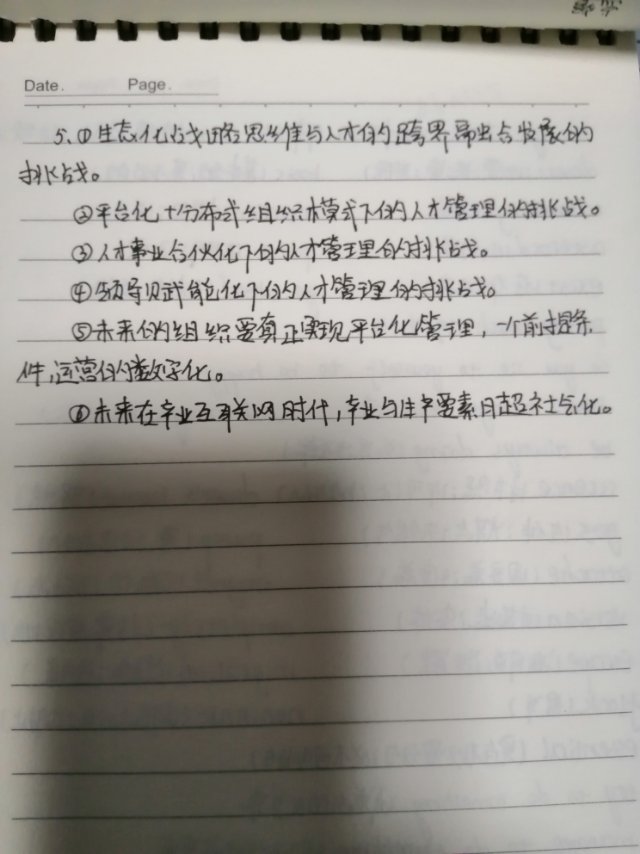 Date. Page.
5、①生态化战略思维与人才的跨界融合发展的
挑战。
②平台化+分布式组织模式下的人才管理的挑战。
③人才事业合伙化下的人才管理的挑战。
④领导赋能化下的人才管理的挑战。
⑤未来的组织要真正实现平台化管理，一个前提条
件，运营的数字化。
⑥未来在产业互联网时代，产业与生产要素日趋社会化。